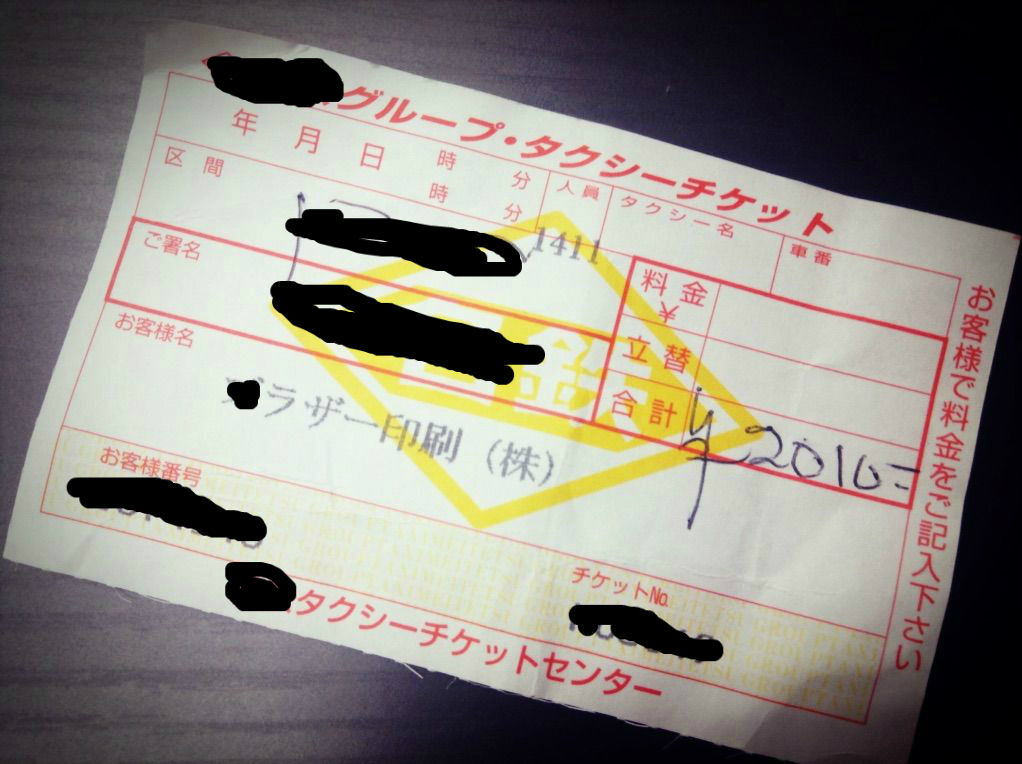 グループ・タクシーチケット
年 月 日 時 分 人員 タクシー名 車番
時 分
区間
1411
ご署名
料金
¥
立替
合計 ¥2010=
お客様名
ブラザー印刷(株)
お客様番号
チケットNo.
タクシーチケットセンター
お客様で料金をご記入下さい